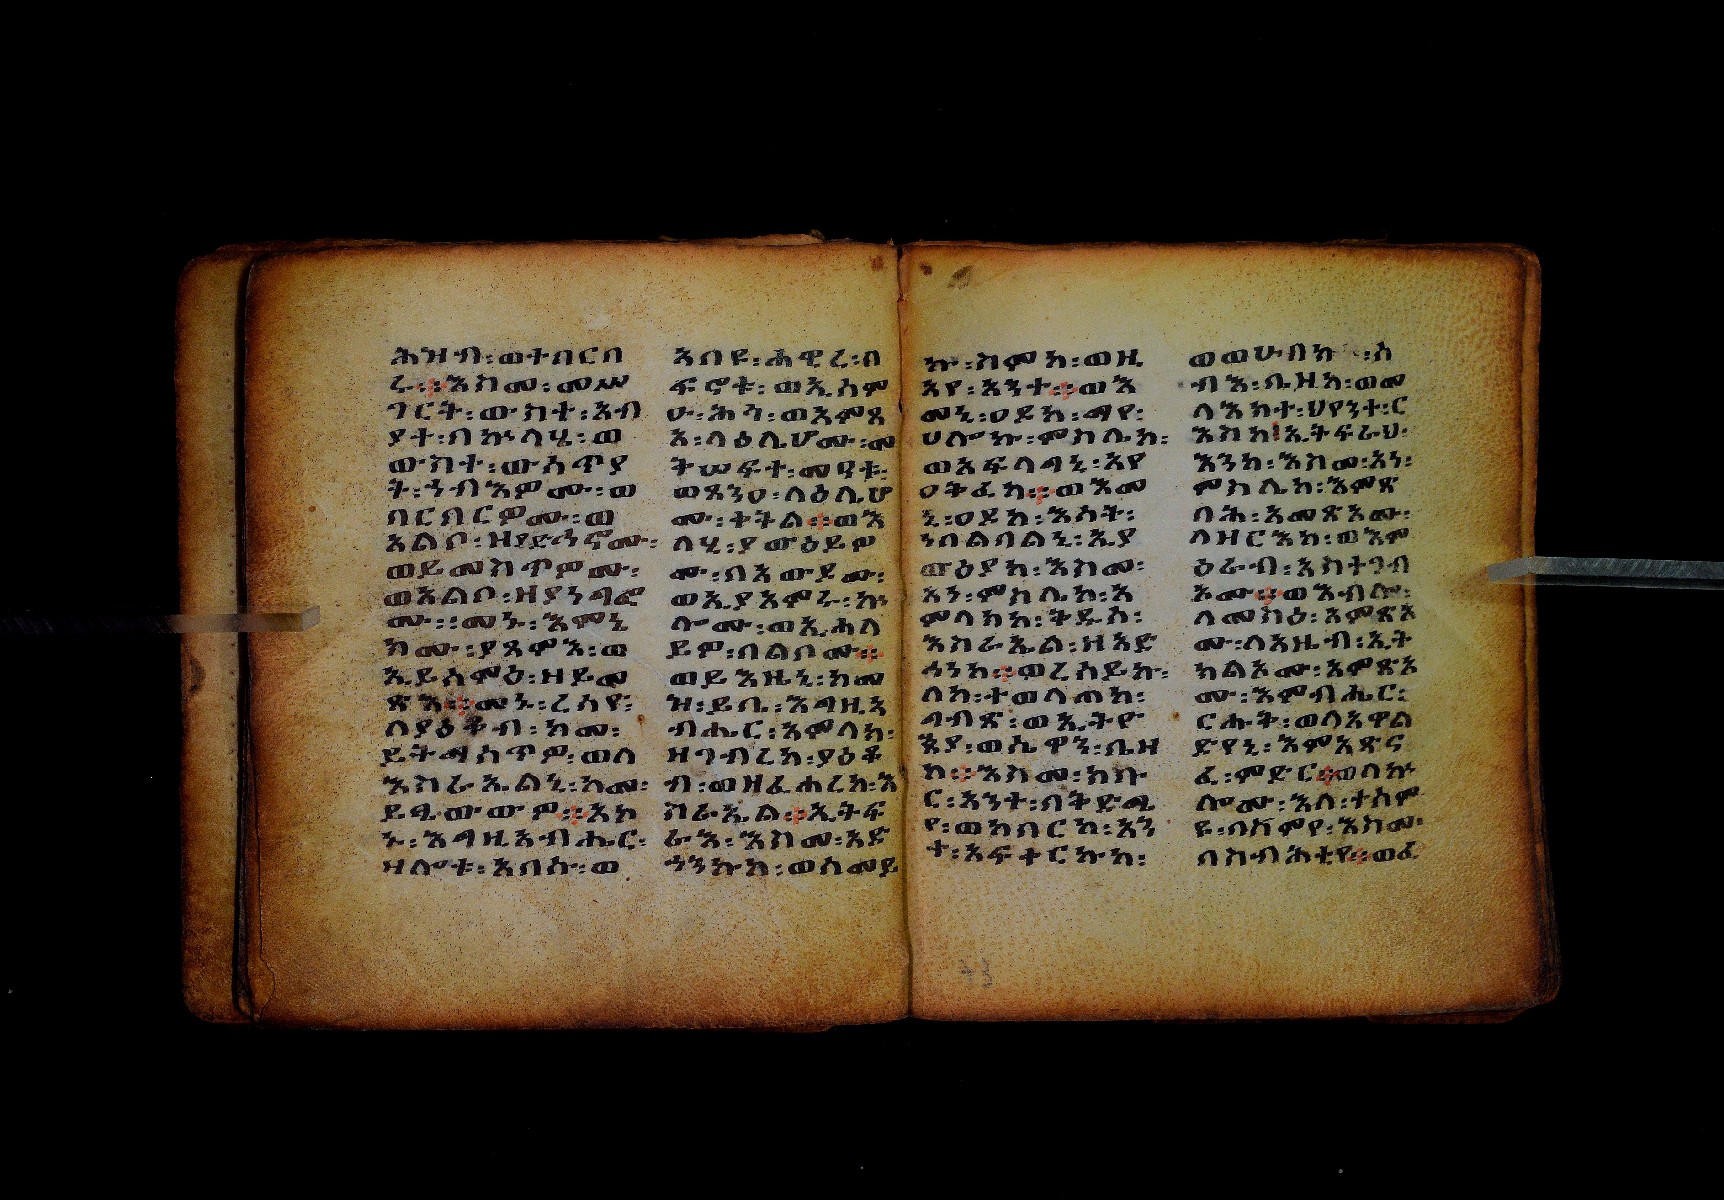 ሕዝብ፡ወተበርበ
ረ፡፡እስመ፡መሥ
ገርት፡ውስተ፡አብ
ያት፡በኵላሄ፡ወ
ውስተ፡ውሳጥያ
ት፡ኀብእዎሙ፡ወ
በርበርዎሙ፡ወ
አልቦ፡ዘያድኅኖሙ፡
ወይመስጥዎሙ፡
ወአልቦ፡ዘያነግፎ
ሙ፡፡መኑ፡እምኔ
ክሙ፡ያጸምእ፡ወ
ኢይሰምዕ፡ዘይመ
ጽእ፡፡መኑ፡ረሰዮ፡
ለያዕቆብ፡ከመ፡
ይትማሰጥዎ፡ወለ
እስራኤልኒ፡ከመ፡
ይፂውውዎ፡፡አኮ
ኑ፡እግዚአብሔር፡
ዘሎቱ፡አበሱ፡ወ
አበዩ፡ሐዊረ፡በ
ፍኖቱ፡ወኢሰም
ዑ፡ሕጎ፡ወአምጽ
አ፡ላዕሌሆሙ፡መ
ትሠፍተ፡መዓቱ፡
ወጸንዐ፡ላዕሌሆ
ሙ፡ቀትል፡፡ወእ
ለሂ፡ያውዕይዎ
ሙ፡በአውዶሙ፡
ወኢያአምሩ፡ኵ
ሎሙ፡ወኢሐለ
ይዎ፡በልቦሙ፡፡
ወይእዜኒ፡ከመ
ዝ፡ይቤ፡እግዚአ
ብሔር፡አምላክ፡
ዘገብረከ፡ያዕቆ
ብ፡ወዘፈሐረከ፡እ
ስራኤል፡፡ኢትፍ
ራእ፡እስመ፡አድ
ኀንኩከ፡ወሰመይ
ኩ፡ስምከ፡ወዚ
አየ፡አንተ፡፡ወእ
መኒ፡ዐደከ፡ማየ፡
ሀሎኩ፡ምስሌከ፡
ወአፍላግኒ፡ኢየ
ዐትፈከ፡፡ወእመ
ኒ፡ዐደከ፡እሳት፡
ነበልባልኒ፡ኢያ
ውዕያከ፡እስመ፡
አነ፡ምስሌከ፡አ
ምላክከ፡ቅዱስ፡
እስራኤል፡ዘአድ
ኀንከ፡፡ወረሰይኩ፡
ለከ፡ተውላጠከ፡
ግብጽ፡ወኢትዮ
ጵያ፡ወሴዋን፡ቤዛ
ከ፡፡እስመ፡ክቡ
ር፡አንተ፡በቅድሜ
የ፡ወከበርከ፡አን
ተ፡አፍቀርኩከ፡
ወወሀብከ፡ሰ
ብእ፡ቤዛከ፡ወመ
ላእክተ፡ህየንተ፡ር
እስከ፡ኢትፍራህ፡
እንከ፡እስመ፡አነ፡
ምስሌከ፡እምጽ
ባሕ፡አመጽኦሙ፡
ለዘርእከ፡ወእም
ዕራብ፡አስተጋብ
ኦሙ፡፡ወእብሎ፡
ለመስዕ፡አምጽኦ
ሙ፡ለአዜብ፡ኢት
ክልኦሙ፡አምጽኦ
ሙ፡እምብሔር፡
ርሑቅ፡ወለአዋል
ድየኒ፡እምአጽና
ፈ፡ምድር፡፡ወለኵ
ሎሙ፡እለ፡ተሰም
ዩ፡በስምየ፡እስመ፡
በስብሐቲየ፡፡ወፈ